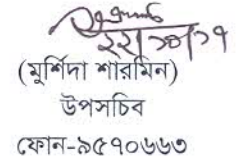 ২২|১০|১৭
(মুর্শিদা শারমিন)
উপসচিব
ফোন-৯৫৭০৬৬৩